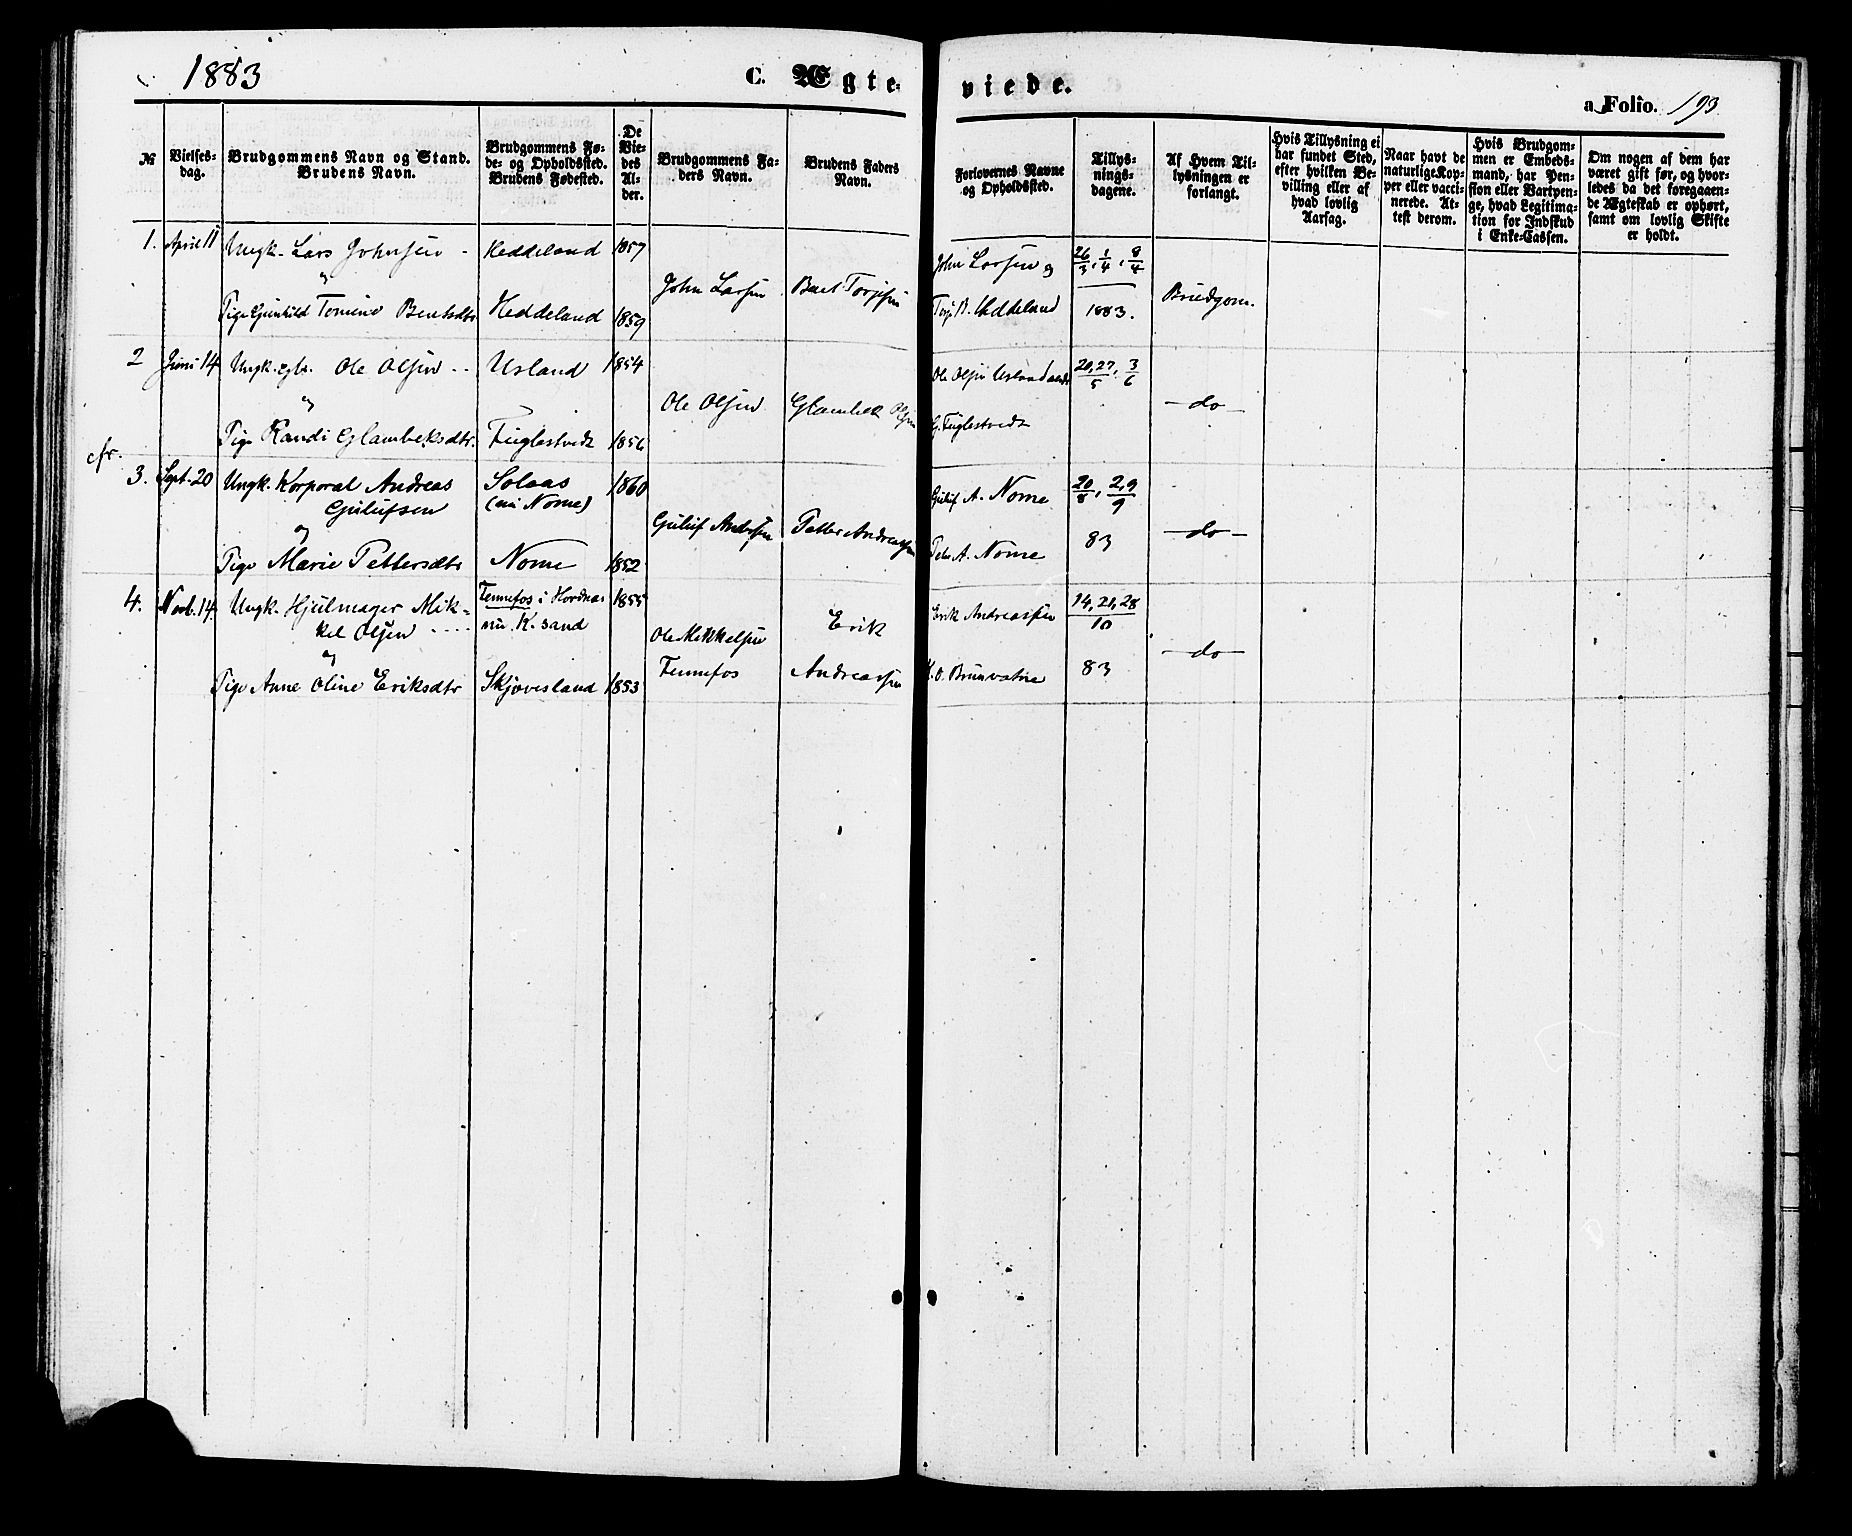 1883
C. Ægte-
viede.
a Folio. 193
№
Vielses-
dag.
Brudgommens Navn og Stand.
Brudens Navn.
Brudgommens Fø-
de- og Opholdssted.
Brudens Fødested.
De
Vie-
des
Al-
der.
Brudgommens Fa-
ders Navn.
Brudens Faders
Navn.
Forlovernes Navne
og Opholdssted.
Tillys-
nings-
dagene.
Af Hvem Til-
lysningen er
forlangt.
Hvis Tillysning ei
har fundet Sted,
efter hvilken Be-
villing eller af
hvad lovlig
Aarsag.
Naar havt de
naturlige Kop-
per eller vacci-
nerede. At-
test derom.
Hvis Brudgom-
men er Embeds-
mand, har Pen-
sion eller Vartpen-
ge, hvad Legitima-
tion for Indskud
i Enke-Cassen.
Om nogen af dem har
været gift før, og hvor-
ledes da det foregaaen-
de Ægteskab er ophørt,
samt om lovlig Skifte
er holdt.
1. April 11 Ungk. Lars Johnsen - Heddeland 1857
og
Pige Gunhild Tomine Bentsdtr Heddeland 1859
John Larsen Bent Torjesen
John Larsen og 26/3, 1/4, 8/4
Torj B. Heddeland 1883. Brudgom.
2 Juni 14 Ungk. Ole Olsen -- Usland 1854
og
Pige Randi Glambeksdtr. Fuglestvedt 1856
Ole Olsen Glambek Olsen
Ole Olsen Usland 20,27/5, 3/6
G. Fuglestvedt -do-
cfr.
3. Sept. 20 Ungk. Korporal Andreas Solaas 1860
Gulufsen (nu Nome)
og
Pige Marie Pettersdtr Nome 1852
Guluf Andersen Petter Andreassen
Guluf A. Nome 20/8, 2,9/9
Peter A. Nome 83 -do-
4. Novb. 14. Ungk. Hjulmager Mik- Fennefos i Hordnæs 1855
kel Olsen .... nu K.sand
og
Pige Anne Oline Eriksdtr Skjøvesland 1853
Ole Mikkelsen Erik
Fennefos Andreassen
Erik Andreassen 14,21,28/10
K. O. Brunvatne 83 -do-